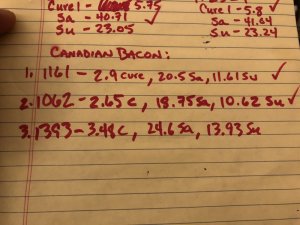 Cure 1 - 5.75 Cure 1 - 5.8 ✓
Sa - 40.71 ✓ Sa - 41.64
Su - 23.05 Su - 23.24
CANADIAN BACON:
1. 1161 - 2.9 cure, 20.5 Sa, 11.61 Su ✓
2. 1062 - 2.65 c, 18.75 Sa, 10.62 Su ✓
3. 1393 - 3.48 c, 24.6 Sa, 13.93 Su